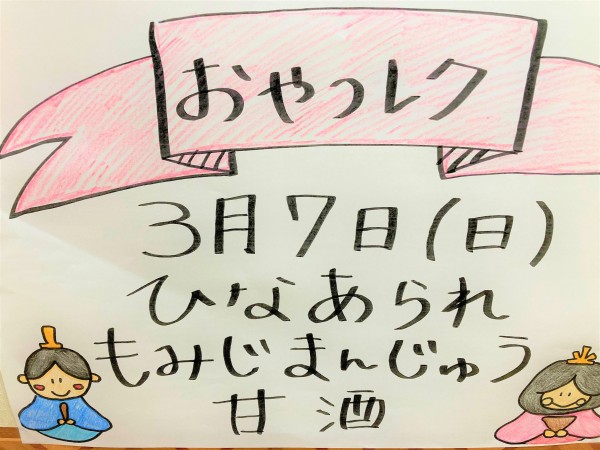 おやつレク
3月7日(日)
ひなあられ
もみじまんじゅう
甘酒